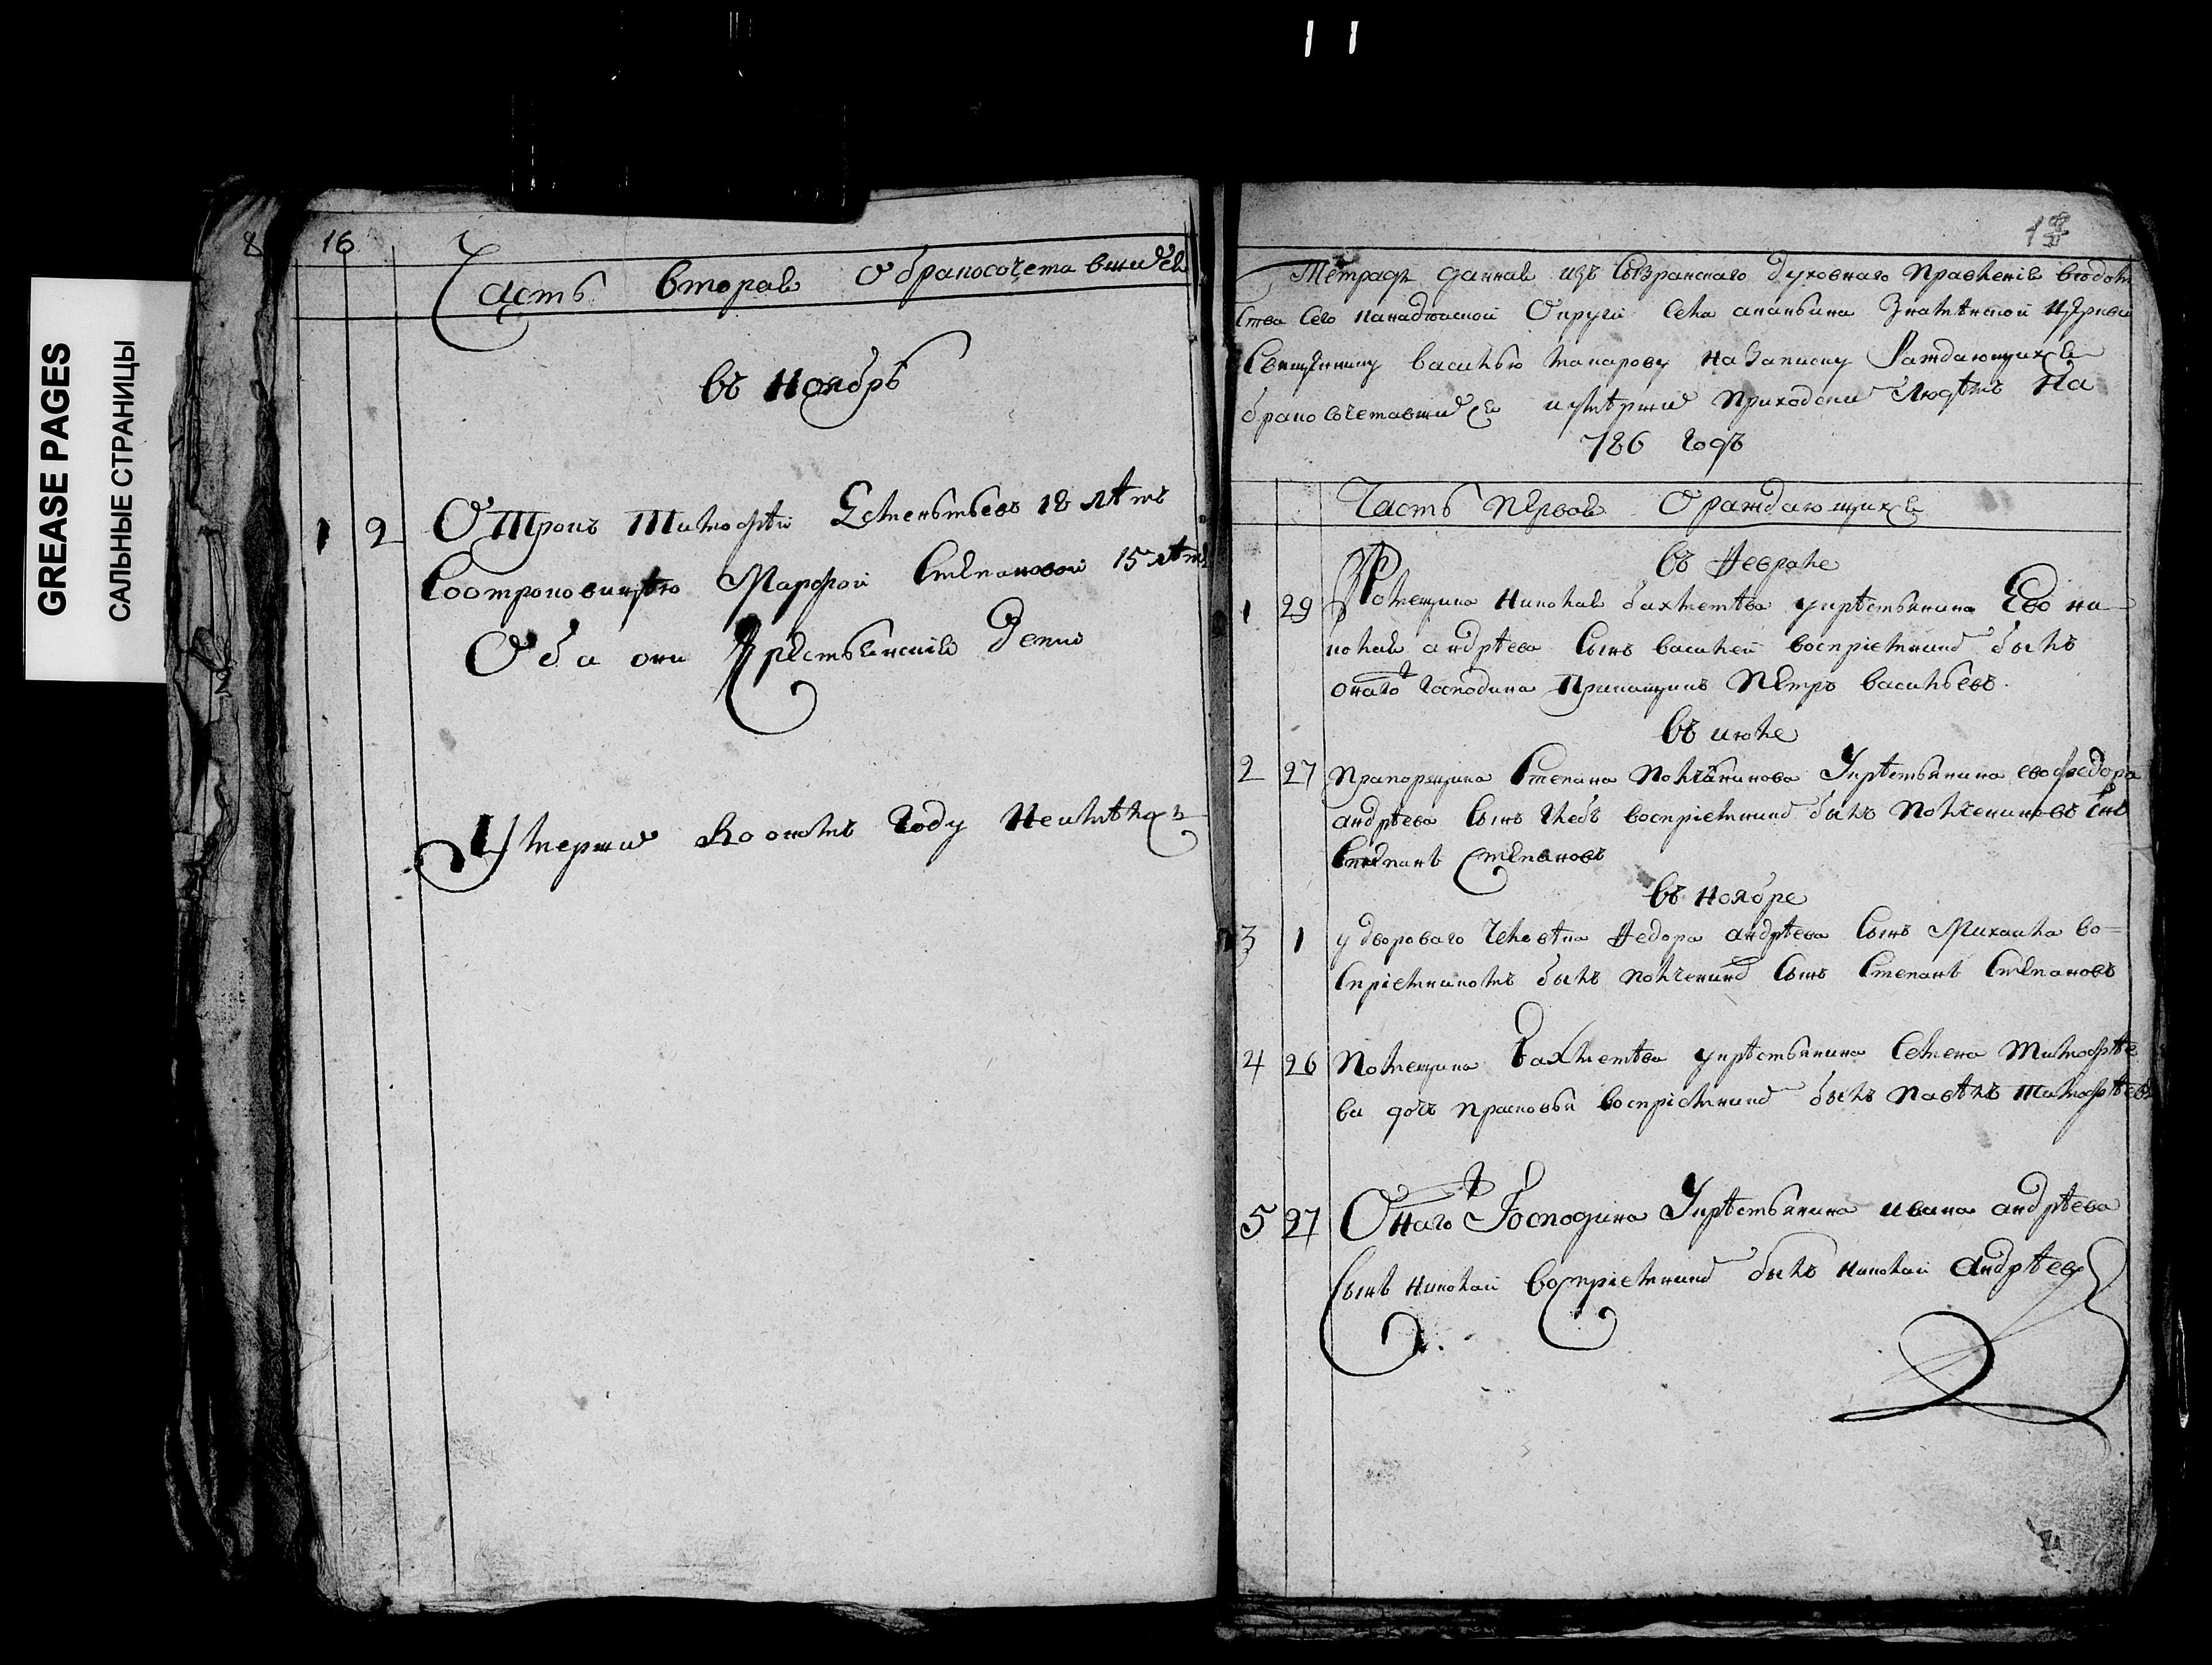 GREASE PAGES
САЛЬНЫЕ СТРАНИЦЫ
8
16
Часть вторая о бракосочетавшихся
въ ноябрѣ
1 2 Отрокъ Тимофѣй 18 лѣтъ
Соотроковицею Марфой Степановой 15 лѣтъ
Оба они крестьянския дети
Умерши во ономъ году неимѣлось
Тетрадь данная изъ Сызранскаго духовнаго правления вѣдом
ства сего канадѣйской округи села ананьина Знаменской церкви
Священнику василью макарову на записку раждающихся
бракосочетавшихся и умершихъ приходскихъ людемъ на
786 годъ
Часть первая о раждающихся
въ Феврале
1 29 Помещика николая бахметева у крѣстьянина Ево ни
колая андрѣева сынъ василей восприемникъ былъ
онаго господина прикащикъ Петръ васильевъ
въ июле
2 27 прапорщика Степана у крѣстьянина ево федора
андрѣева сынъ глебъ восприемникъ былъ сынъ
Степанъ Степановъ
въ ноябре
3 1 у двороваго человѣка Федора андрѣева сынъ Михаила во=
сприемникомъ былъ сынъ Степанъ Степановъ
4 26 помещика Бахметева у крѣстьянина семена тимофѣе
ва дочь прасковья восприемникъ былъ павѣлъ тимофѣевъ
5 27 Онаго Господина у крѣстьянина ивана андрѣева
сынъ николай восприемникъ былъ николай андрѣевъ